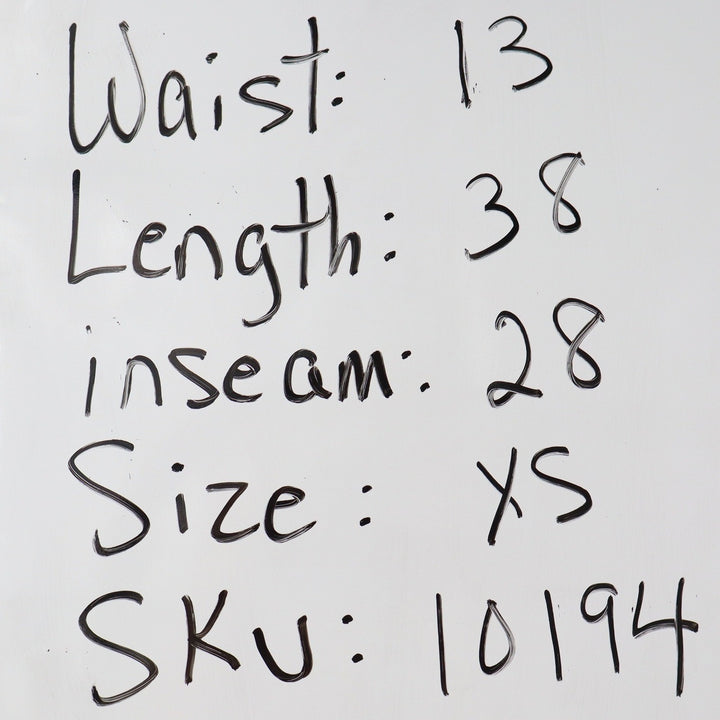 Waist: 13
Length: 38
inseam: 28
Size: XS
SKU: 10194